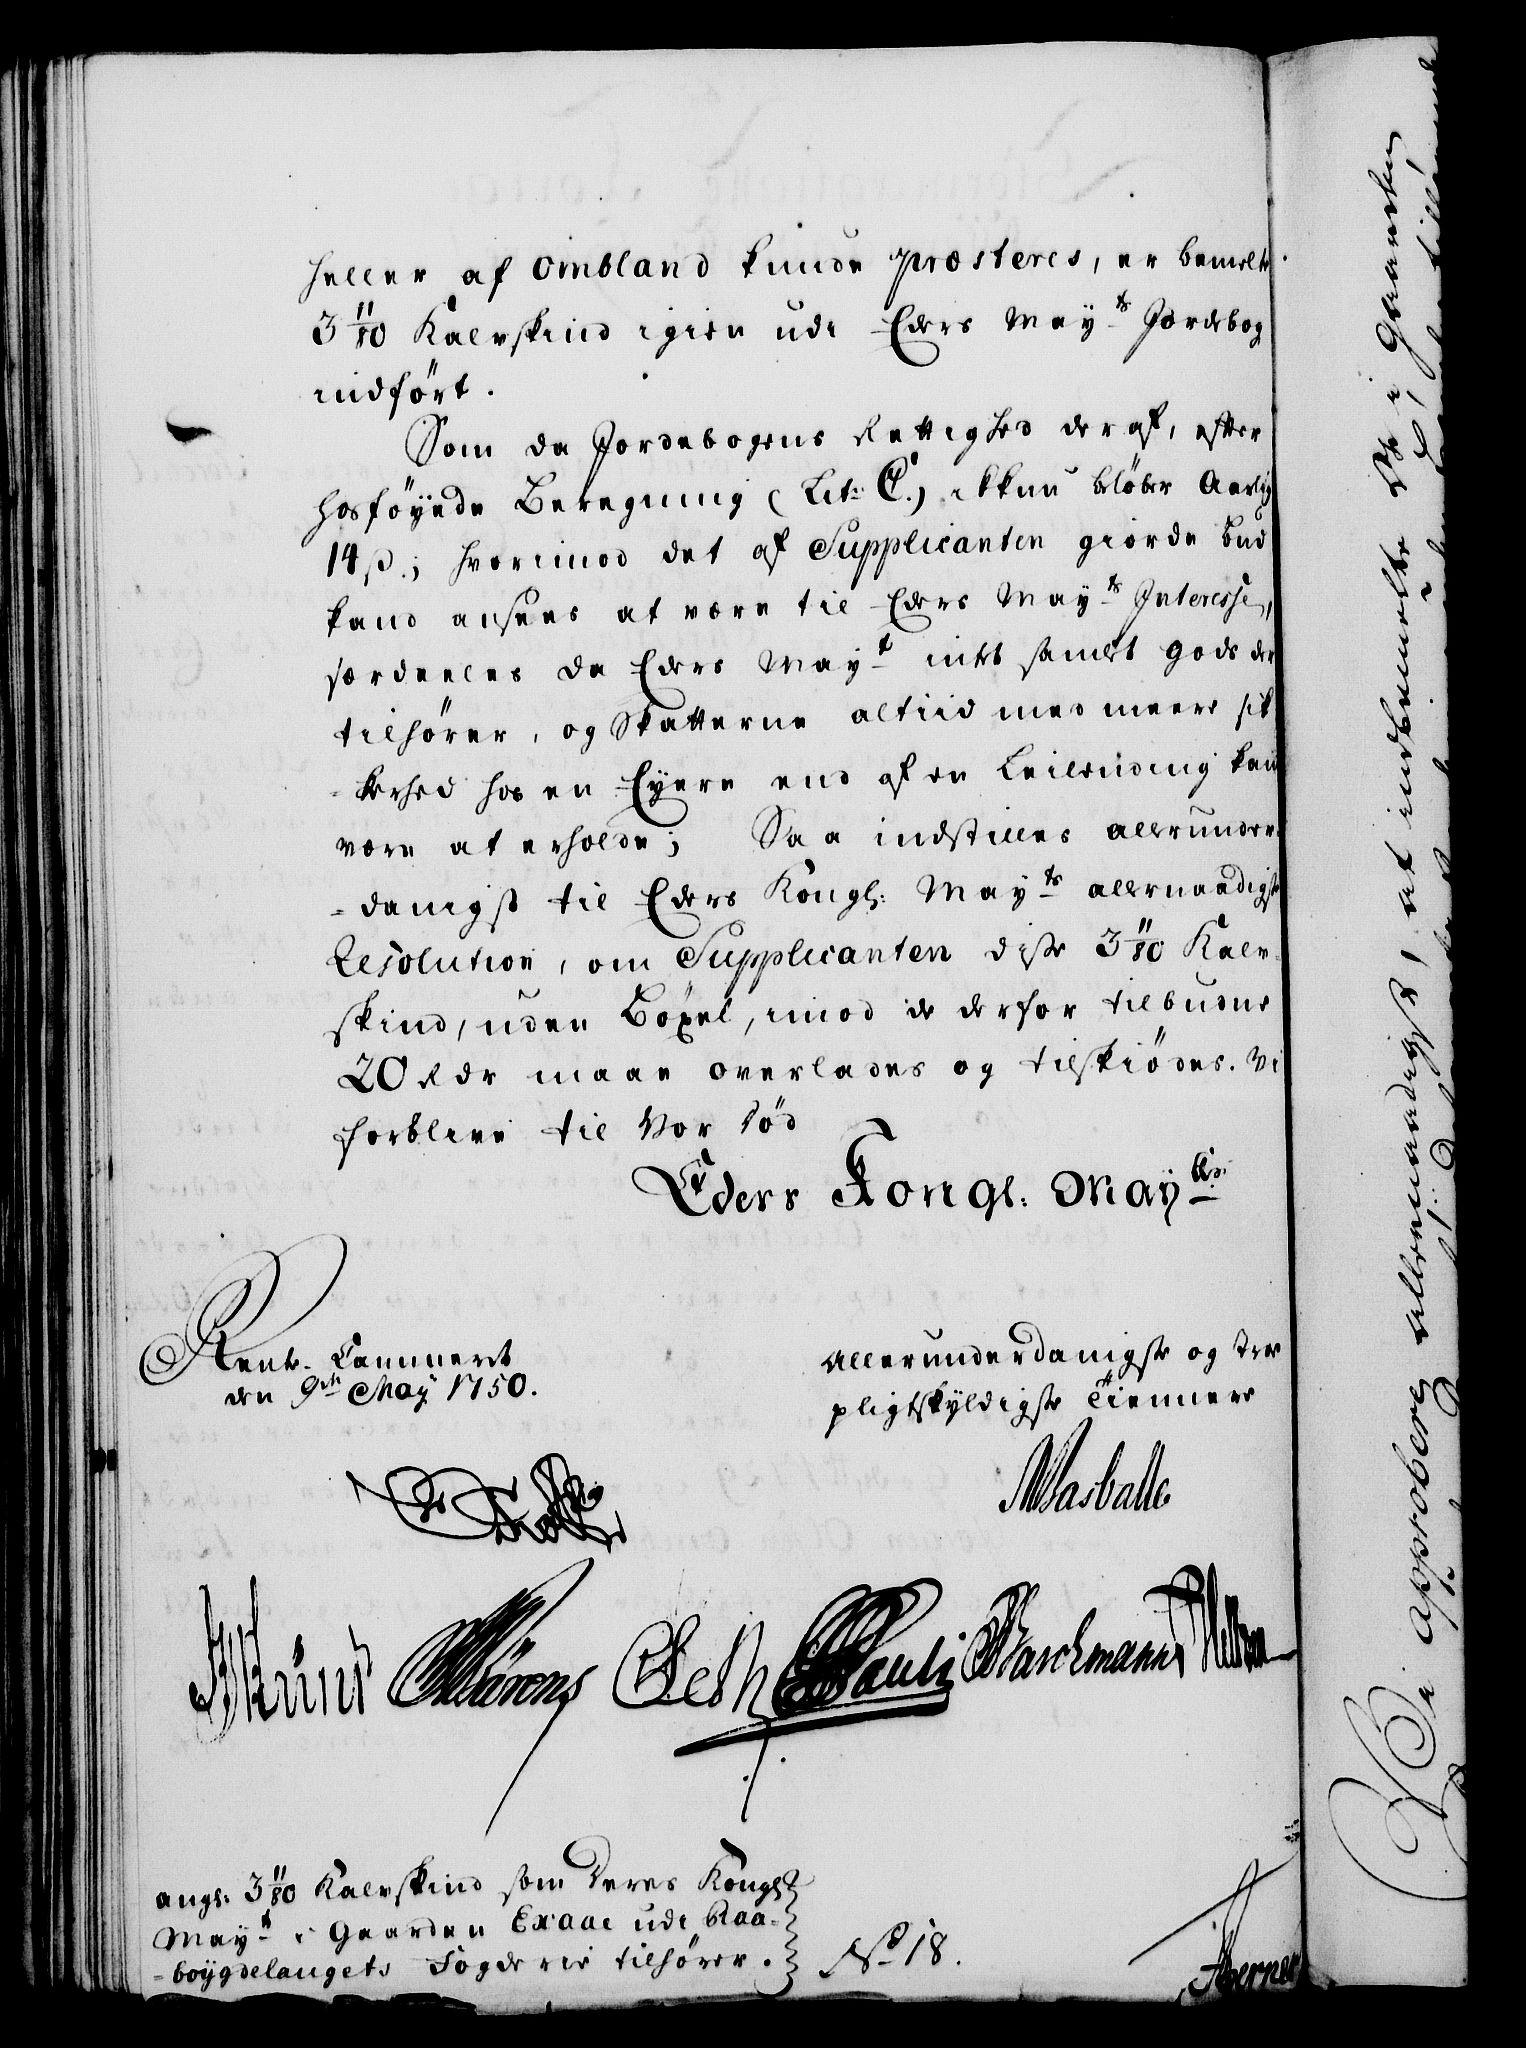 heller af Ombland kunde præsteres, er bemelte
3 11/80 Kalvskind igien udi Eders Mayts Jordebog
indført.
Som da Jordebogens Rettighed deraf, efter
hosføyede Beregning (Lit: C.) ikkun beløber Aarlig
14 ß.; hvorimod det af Supplicanten giorde bud
kand ansees at være til Eders Mayts Interesse,
særdeeles da Eders Mayt intet samlet gods der
tilhører, og Skatterne altiid med meere sik-
-kerhed hos en Eyere end af en Leilending kan
være at erholde; Saa indstilles allerunder-
-danigst til Eders Kongl: Mayts allernaadigste
Resolution, om Supplicanten disse 3 11/80 Kalv-
skind, uden Bøxel, imod de derfor tilbudne
20 Rdr maae overlades og tilskiødes. Vi
forblive til Vor Død
Eders Kongl: Mayts
Rente-Cammeret
den 9de May 1750.
Allerunderdanigste og troe
pligtskyldigste Tiennere
Pauli
angl: 3 11/80 Kalvskind som Deres Kongl
Mayt i Gaarden Exaae udi Raa-
-boygdelaugets Fogderie tilhører.
No 18.
Vi approbere allernaadigst, at indbemelte de i Gaarden